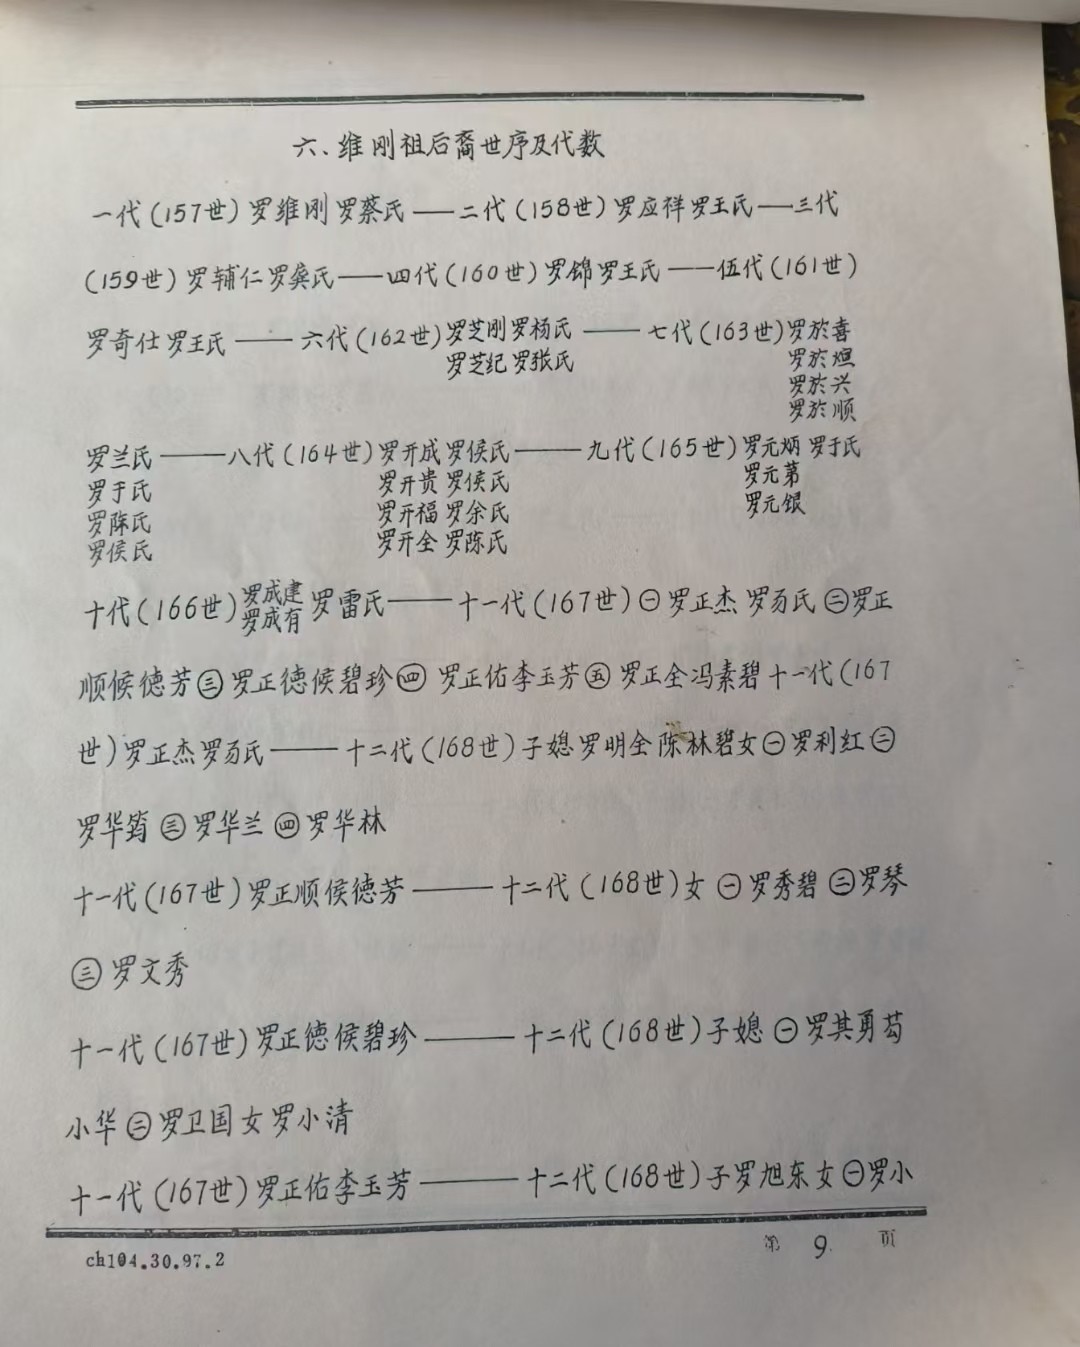 六、维刚祖后裔世序及代数
一代(157世)罗维刚罗蔡氏——二代(158世)罗应祥罗王氏——三代
(159世)罗辅仁罗龚氏——四代(160世)罗锦罗王氏——伍代(161世)
罗奇仕罗王氏——六代(162世)罗芝刚罗杨氏——七代(163世)罗於喜
罗芝纪罗张氏 罗於烜
罗於兴
罗於顺
罗兰氏——八代(164世)罗开成罗侯氏——九代(165世)罗元炳罗于氏
罗于氏 罗开贵罗侯氏 罗元第
罗陈氏 罗开福罗余氏 罗元银
罗侯氏 罗开全罗陈氏
十代(166世)罗成建 罗雷氏——十一代(167世)㊀罗正杰罗万氏㊁罗正
罗成有
顺候德芳㊂罗正德候碧珍㊃罗正佑李玉芳㊄罗正全冯素碧十一代(167
世)罗正杰罗万氏——十二代(168世)子媳罗明全陈林碧女㊀罗利红㊁
罗华筠㊂罗华兰㊃罗华林
十一代(167世)罗正顺侯德芳——十二代(168世)女㊀罗秀碧㊁罗琴
㊂罗文秀
十一代(167世)罗正德侯碧珍——十二代(168世)子媳㊀罗其勇芶
小华㊁罗卫国女罗小清
十一代(167世)罗正佑李玉芳——十二代(168世)子罗旭东女㊀罗小
ch104.30.97.2 第9页